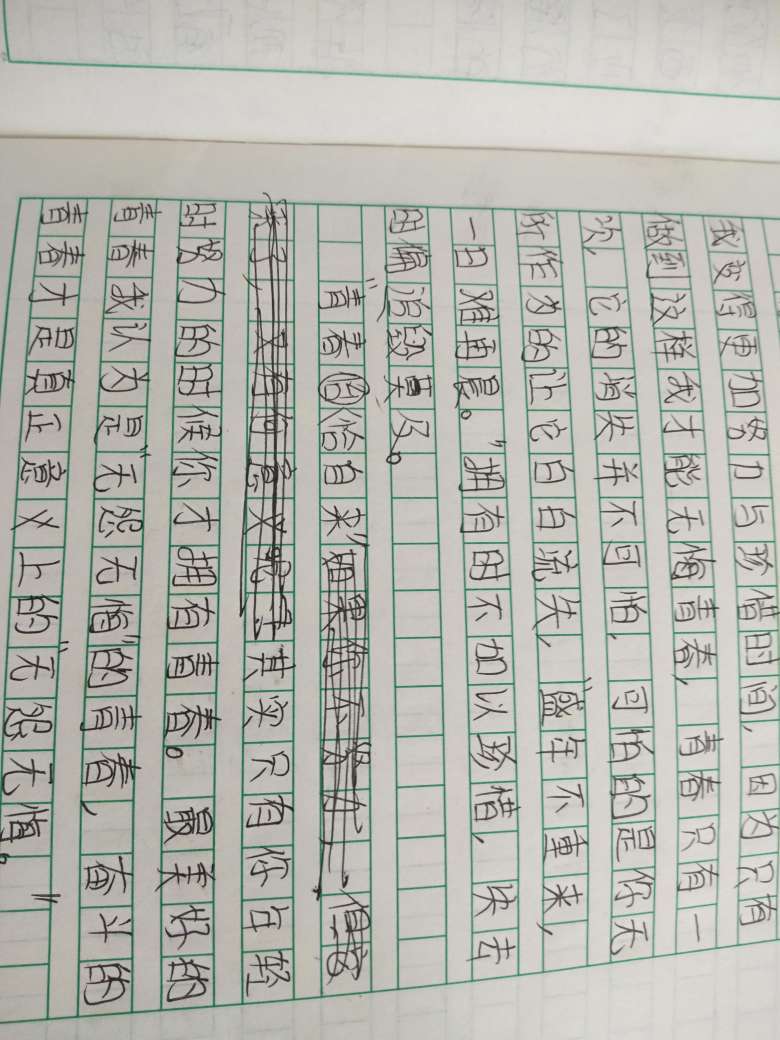 我变得更加努力与珍惜时间，因为只有
做到这样我才能无悔青春，青春只有一
次，它的消失并不可怕，可怕的是你无
所作为的让它白白流失，“盛年不重来，
一日难再晨。”拥有时不加以珍惜，失去
时痛
“青春恰自来”
其实只有你年轻
时努力的时候你才拥有青春。最美好的
青春我认为是“无怨无悔”的青春，奋斗的
青春才是真正意义上的“无怨无悔。”